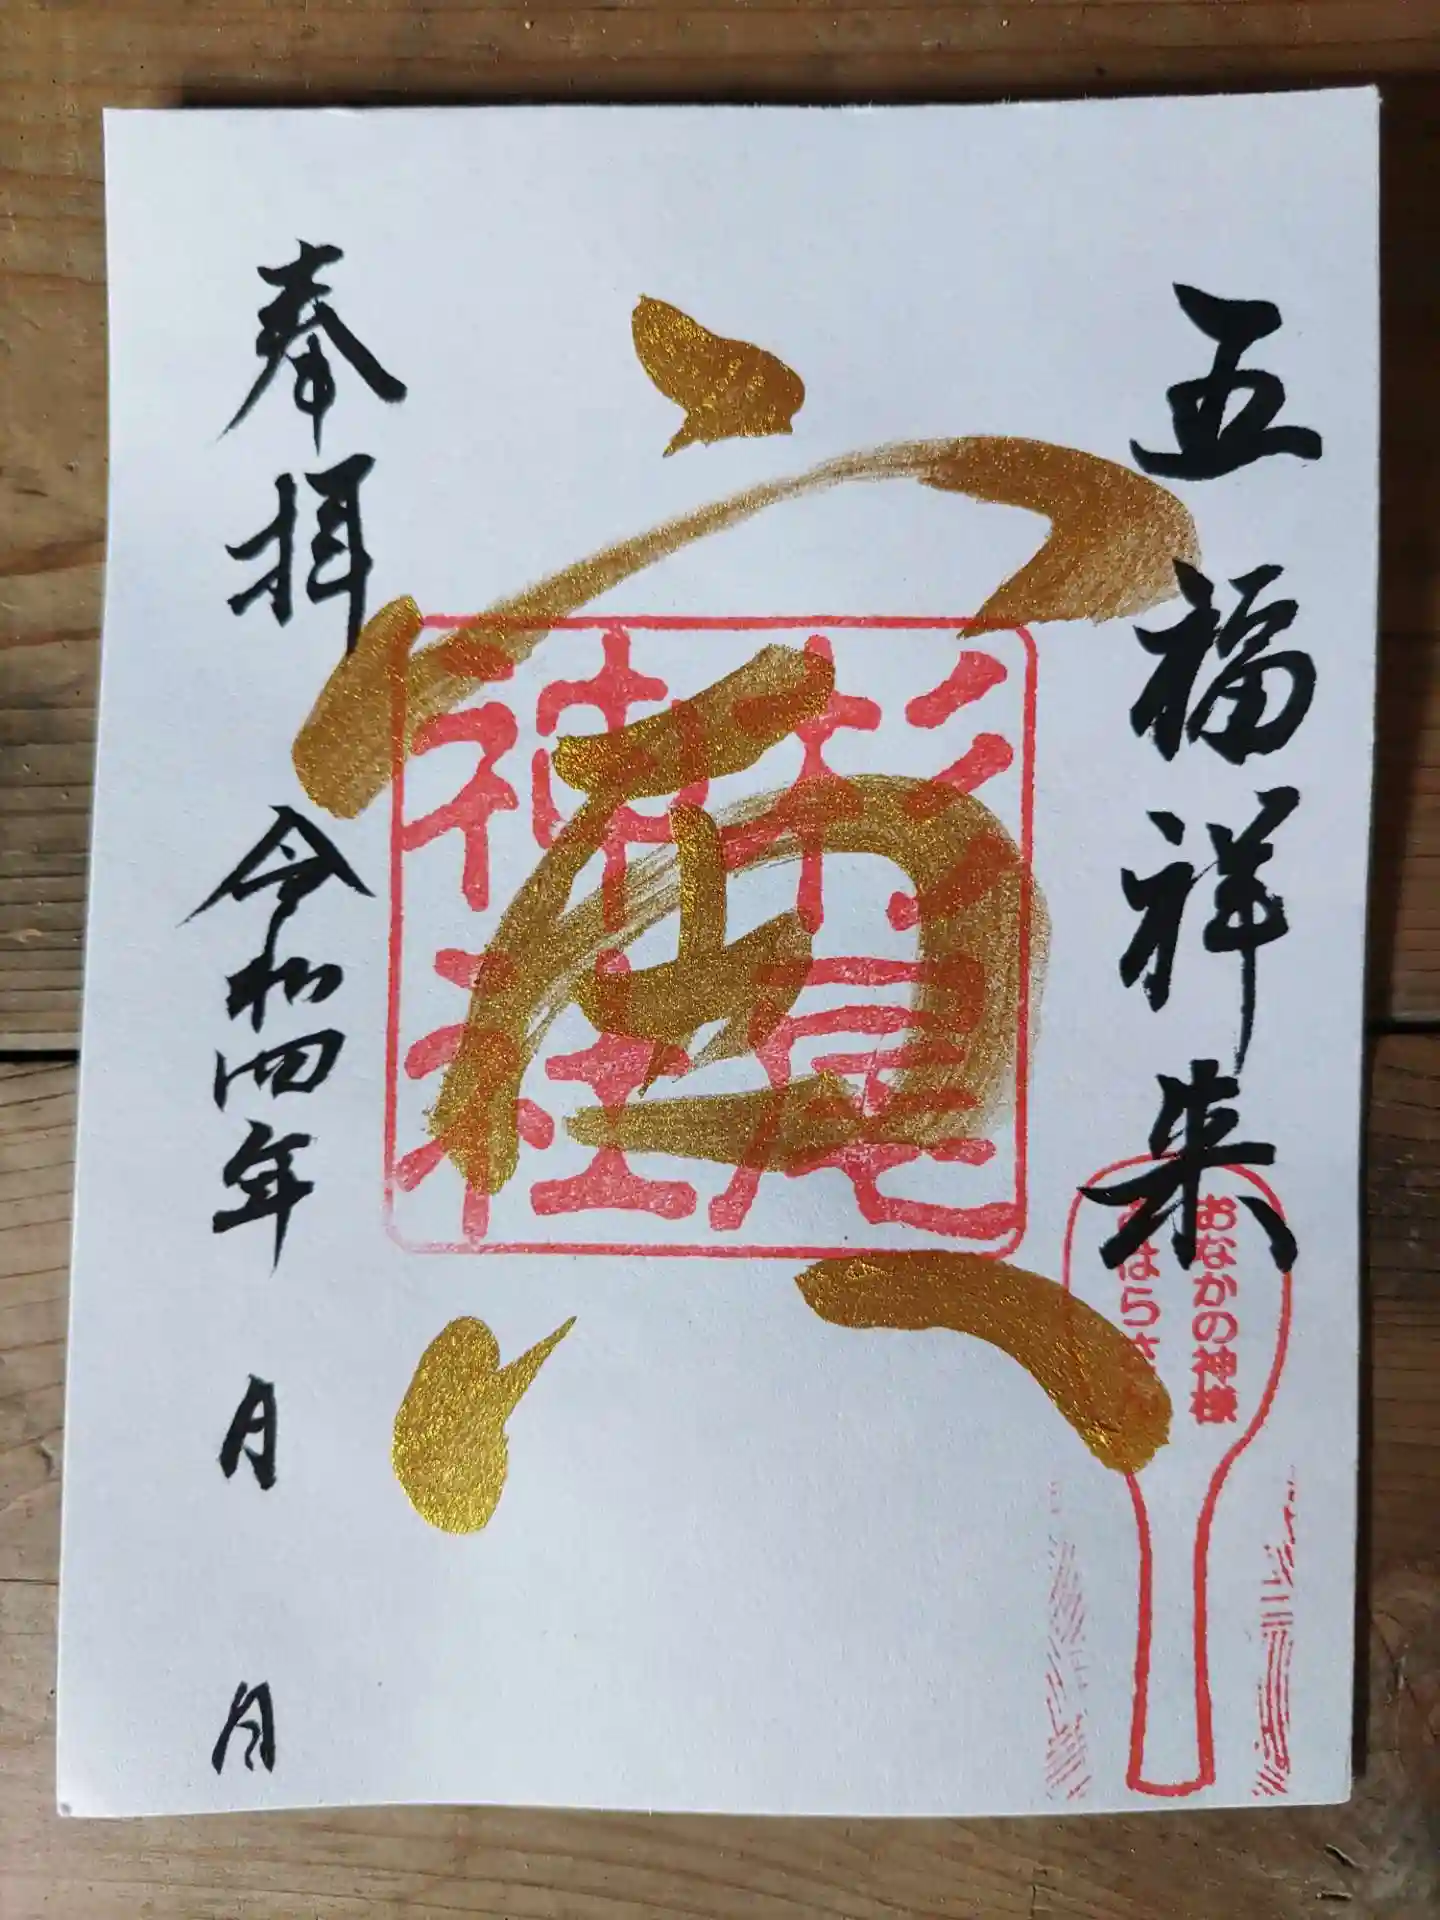 五福祥来
おなかの神様
寅
杉尾
神社
奉拝
令和四年 月 日